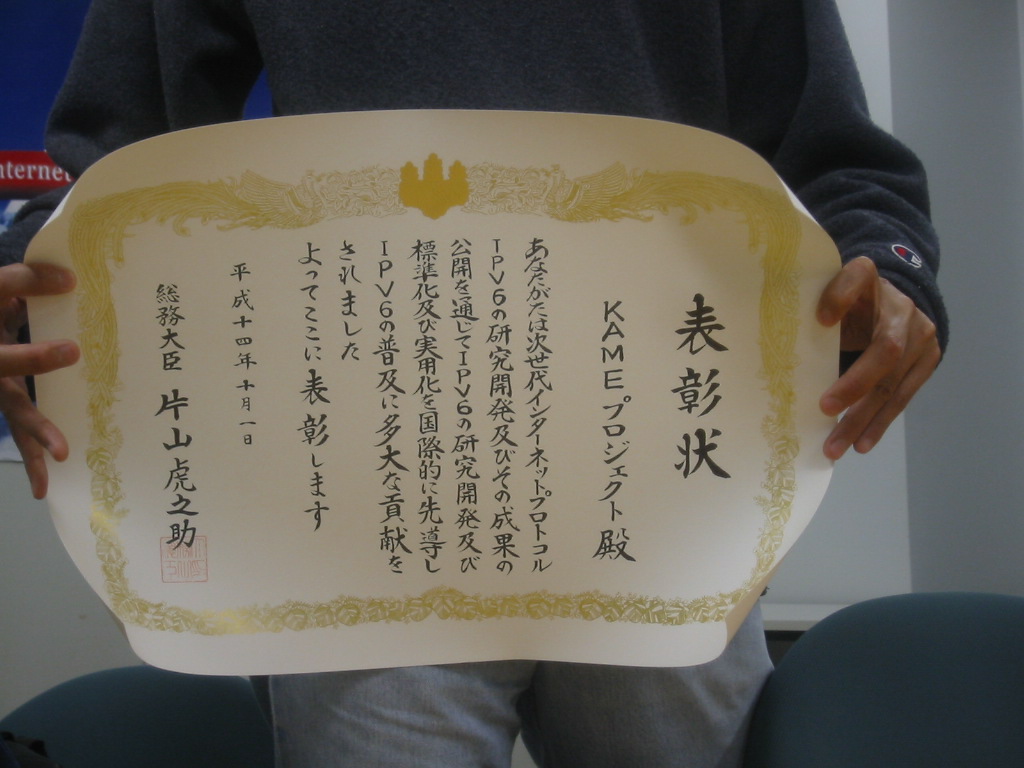 表彰状
KAMEプロジェクト殿
あなたがたは次世代インターネットプロトコル
IPV6の研究開発及びその成果の
公開を通じてIPV6の研究開発及び
標準化及び実用化を国際的に先導し
IPV6の普及に多大な貢献を
されました
よってここに表彰します
平成十四年十月一日
総務大臣 片山虎之助
nternet